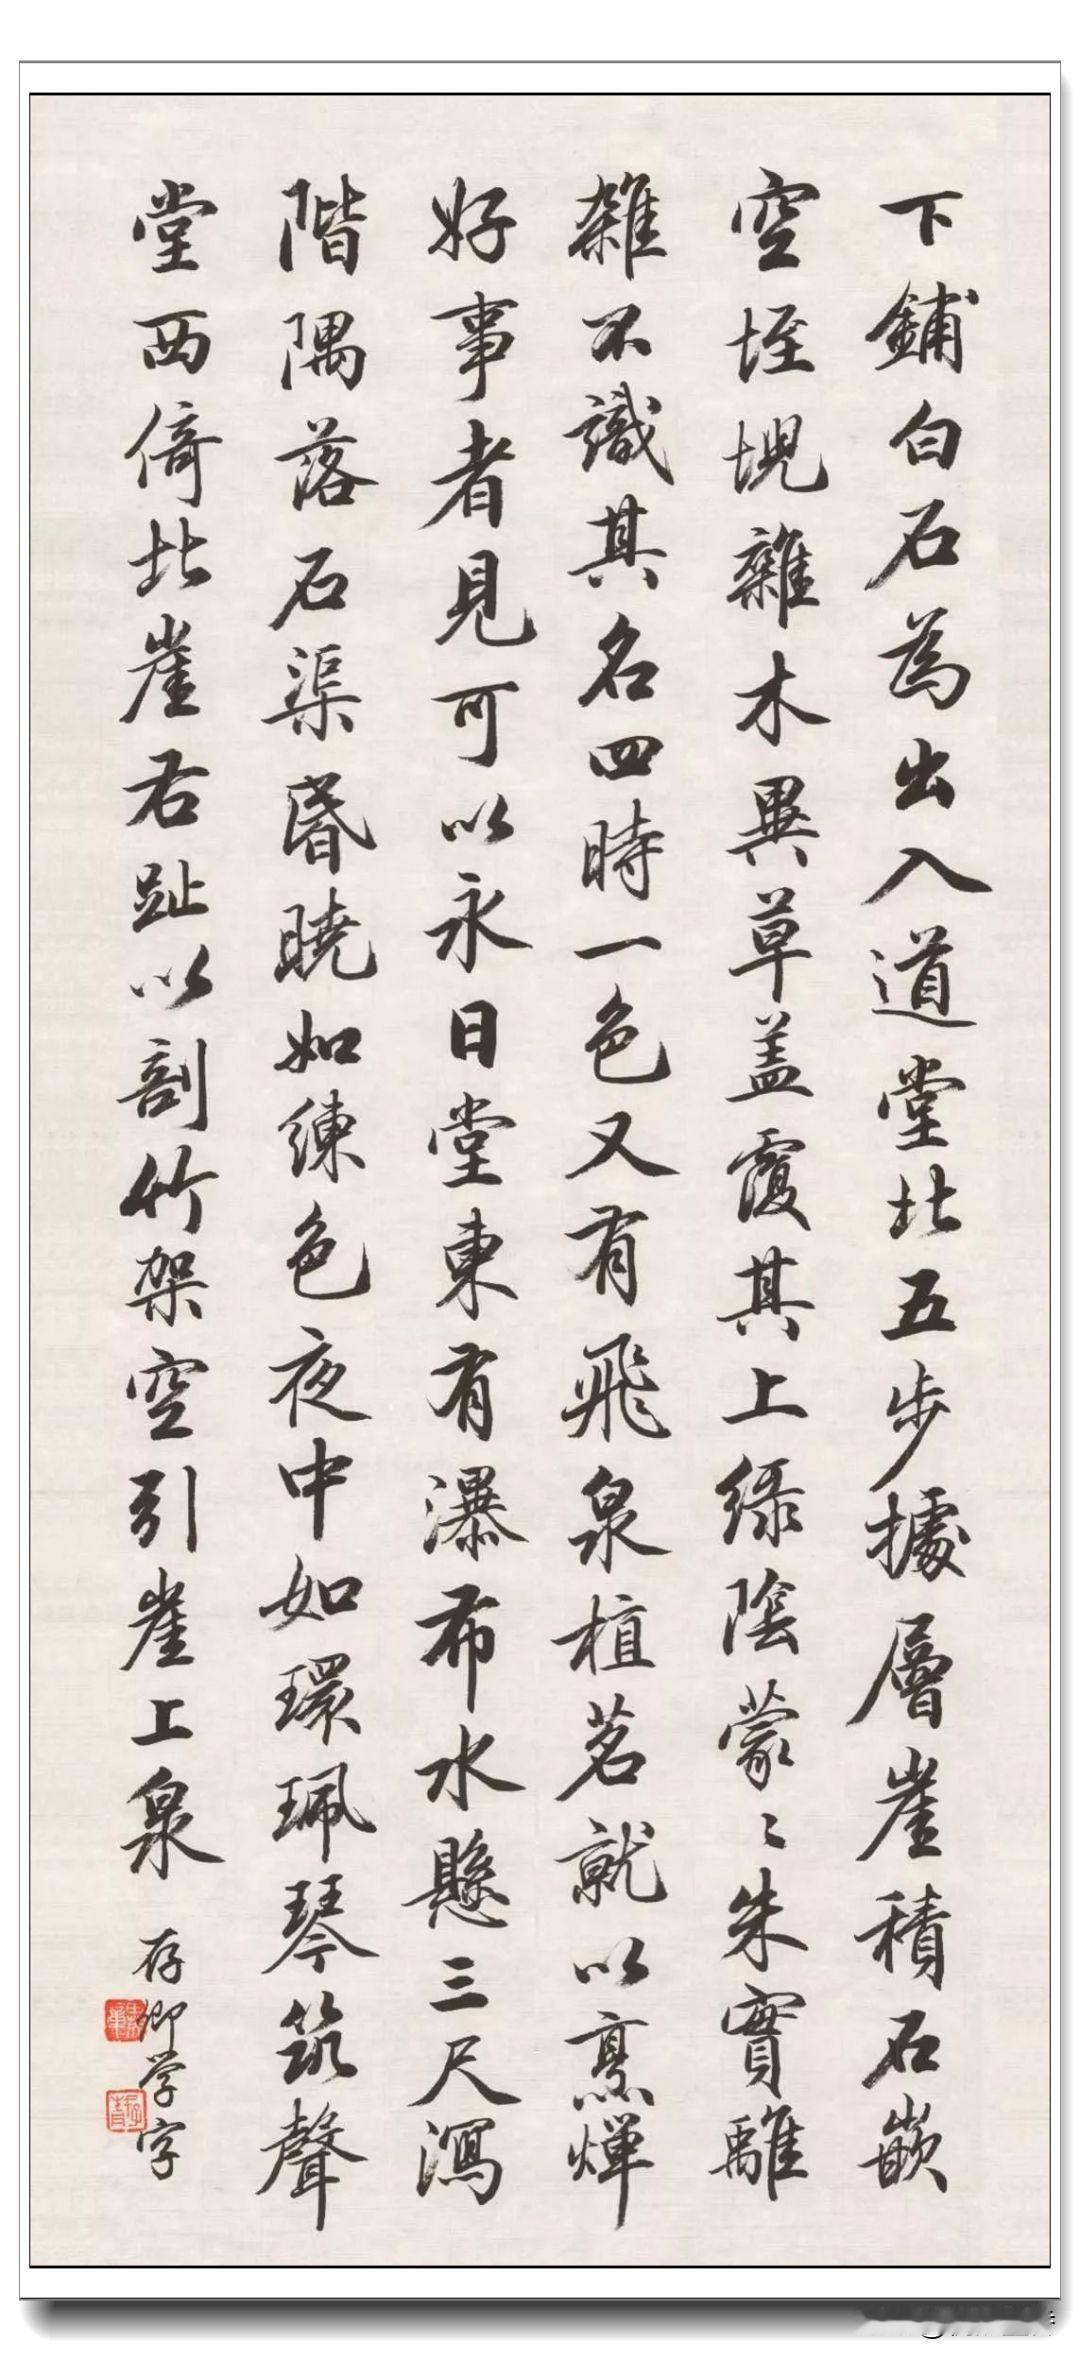 下鋪白石為出入道堂北五步據層崖積石嵌
空垤堄雜木異草盖覆其上綠陰蒙〻朱實離
雜不識其名四時一色又有飛泉植茗就以烹燀
好事者見可以永日堂東有瀑布水懸三尺瀉
階隅落石渠昬曉如練色夜中如環珮琴筑聲
堂西倚北崖右趾以剖竹架空引崖上泉
存卿学字